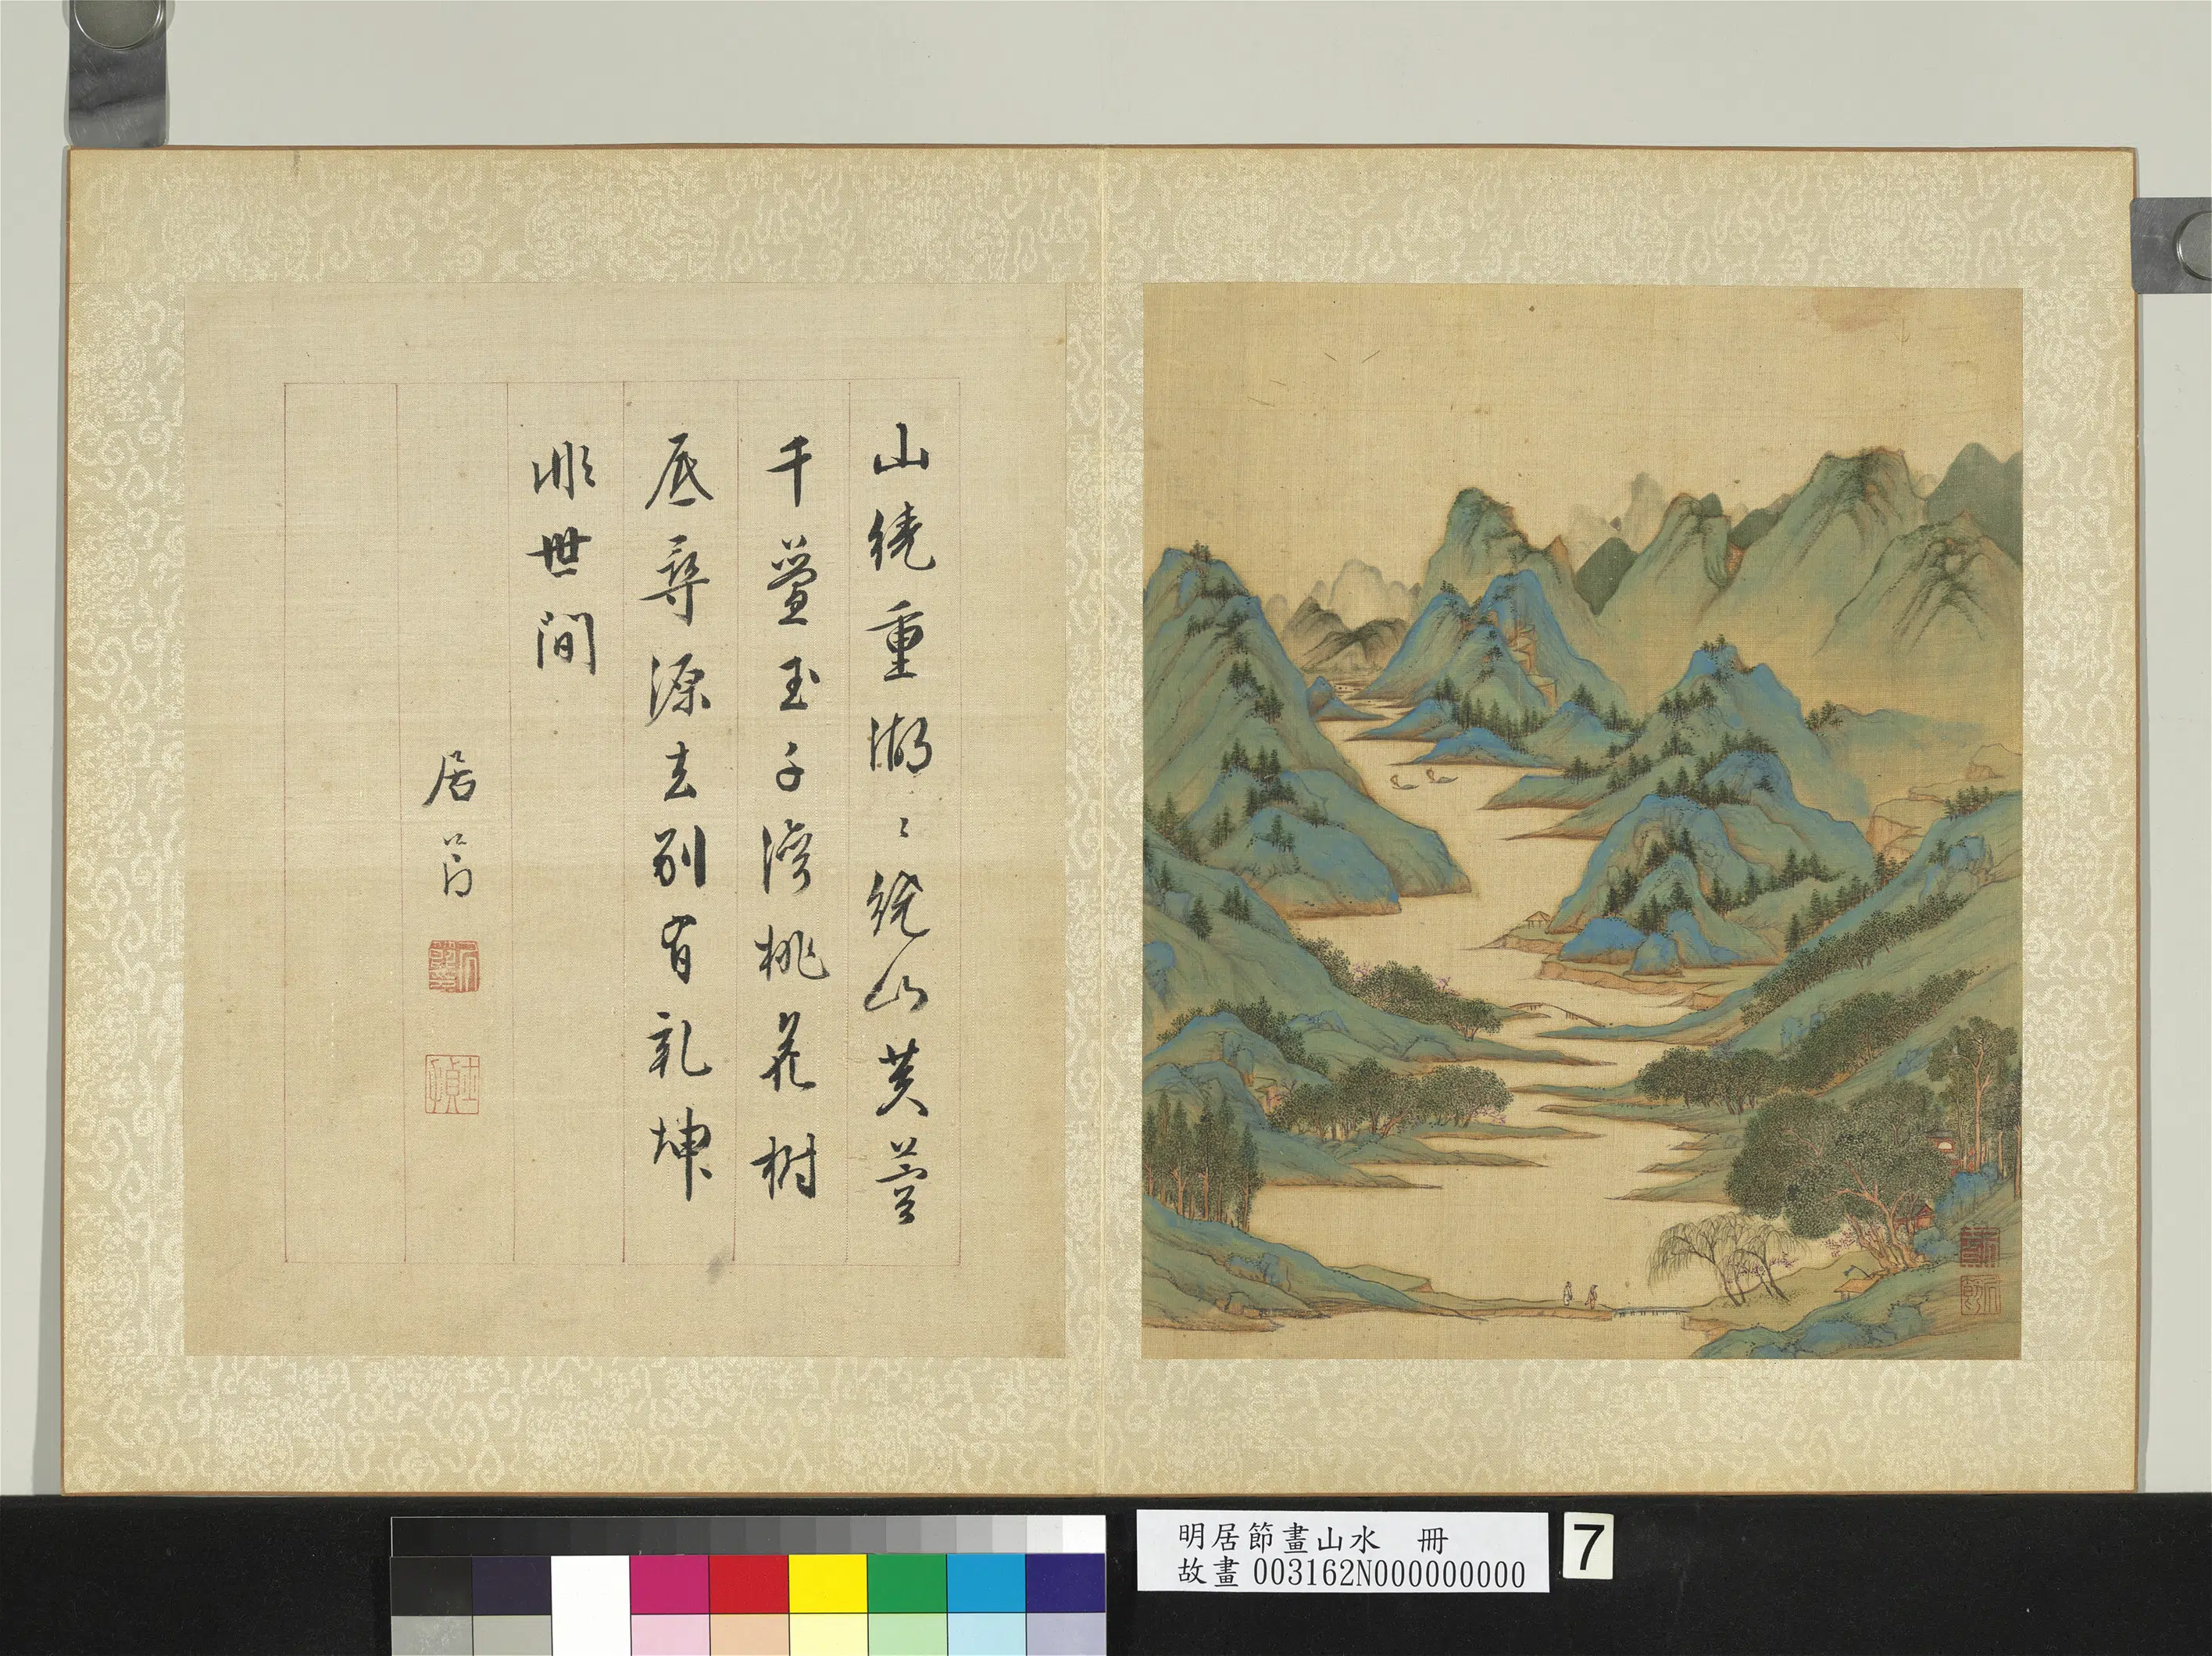 山繞重湖〻繞山芙蓉
千疊玉千灣桃花樹
底尋源去別有乾坤
非世間
居節
明居節畫山水 冊
故畫003162N000000000
7